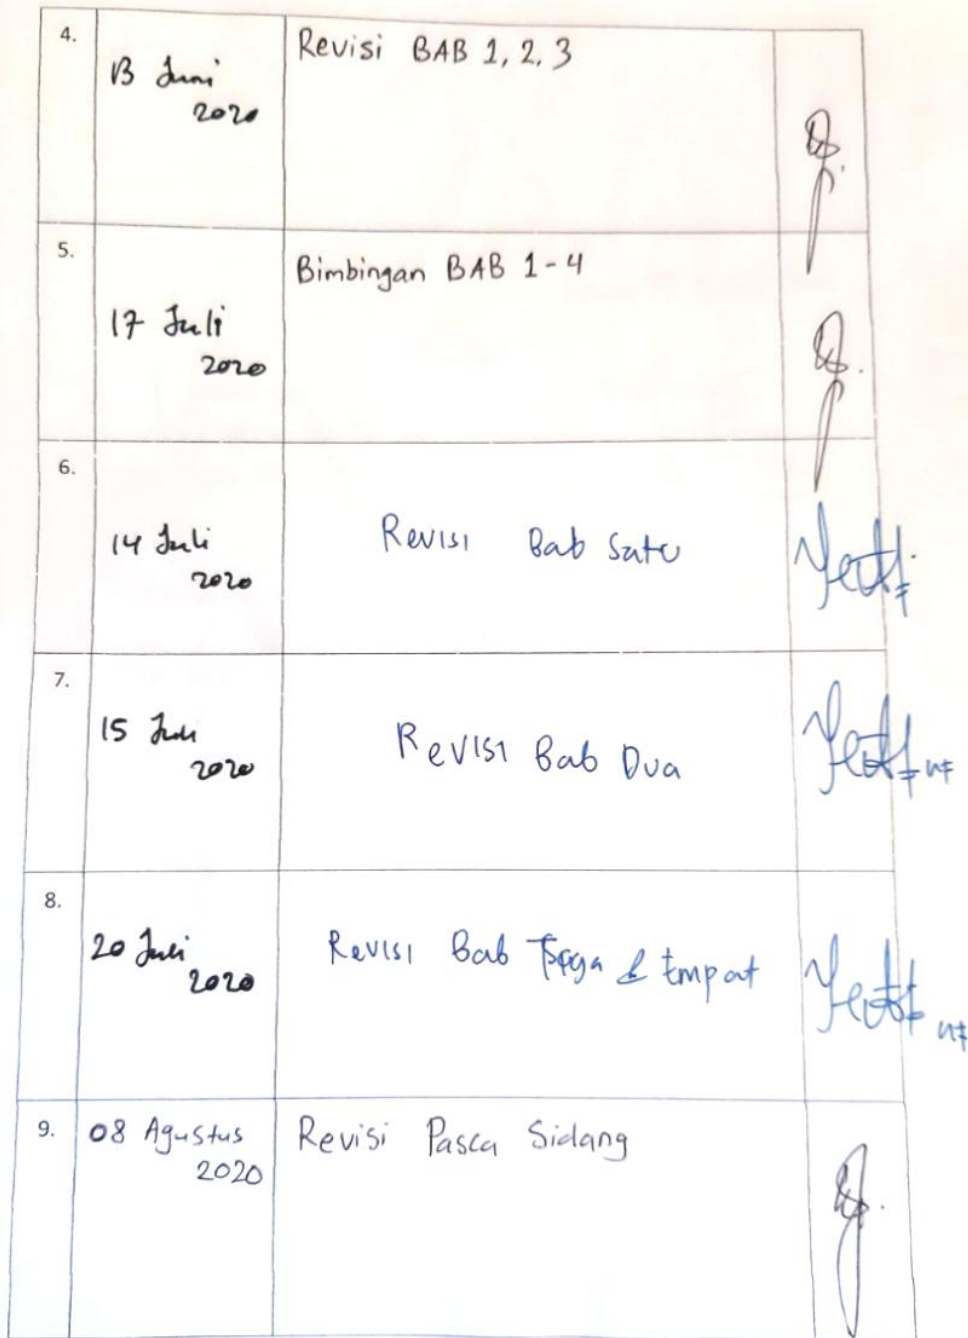 4.
13 Juni
2020
Revisi BAB 1, 2, 3
5.
17 Juli
2020
Bimbingan BAB 1-4
6.
14 Juli
2020
Revisi Bab Satu
7.
15 Juli
2020
Revisi Bab Dua
8.
20 Juli
2020
Revisi Bab Tiga & Empat
9.
08 Agustus
2020
Revisi Pasca Sidang